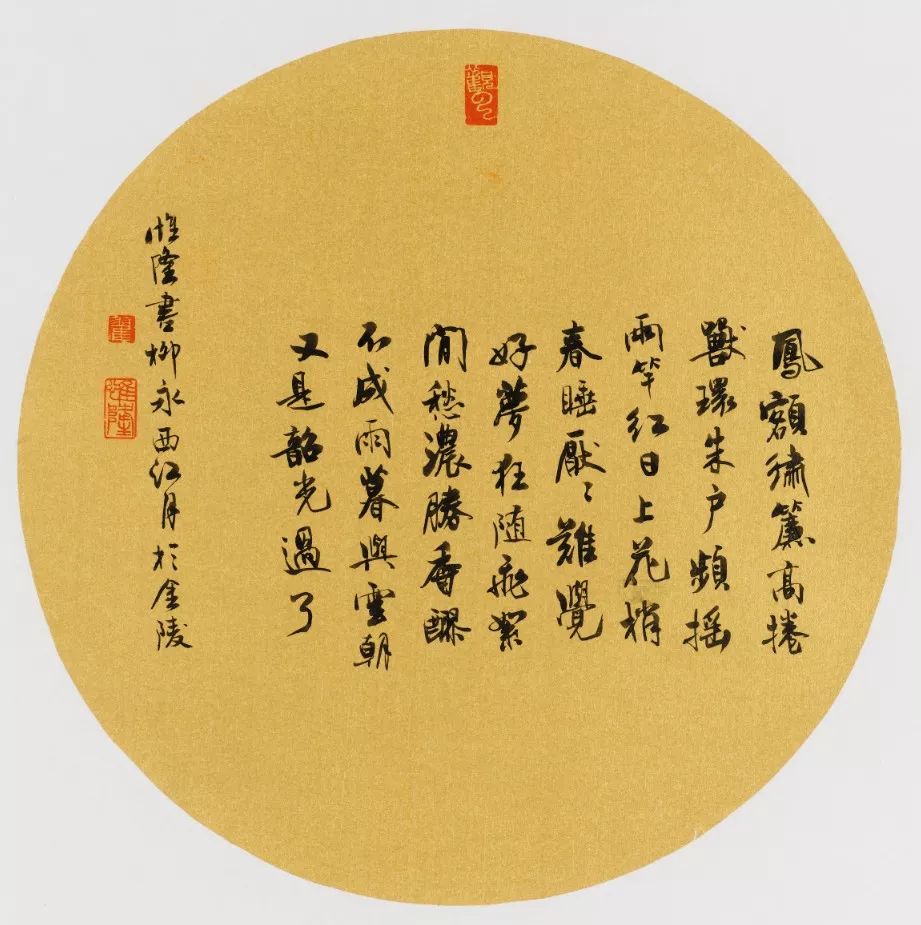 鳳額繡簾高捲
獸環朱户頻摇
兩竿紅日上花梢
春睡厭〻難覺
好夢狂随飛絮
閒愁濃勝香醪
不成雨暮與雲朝
又是韶光過了
惟隆書柳永西江月於金陵
惟隆